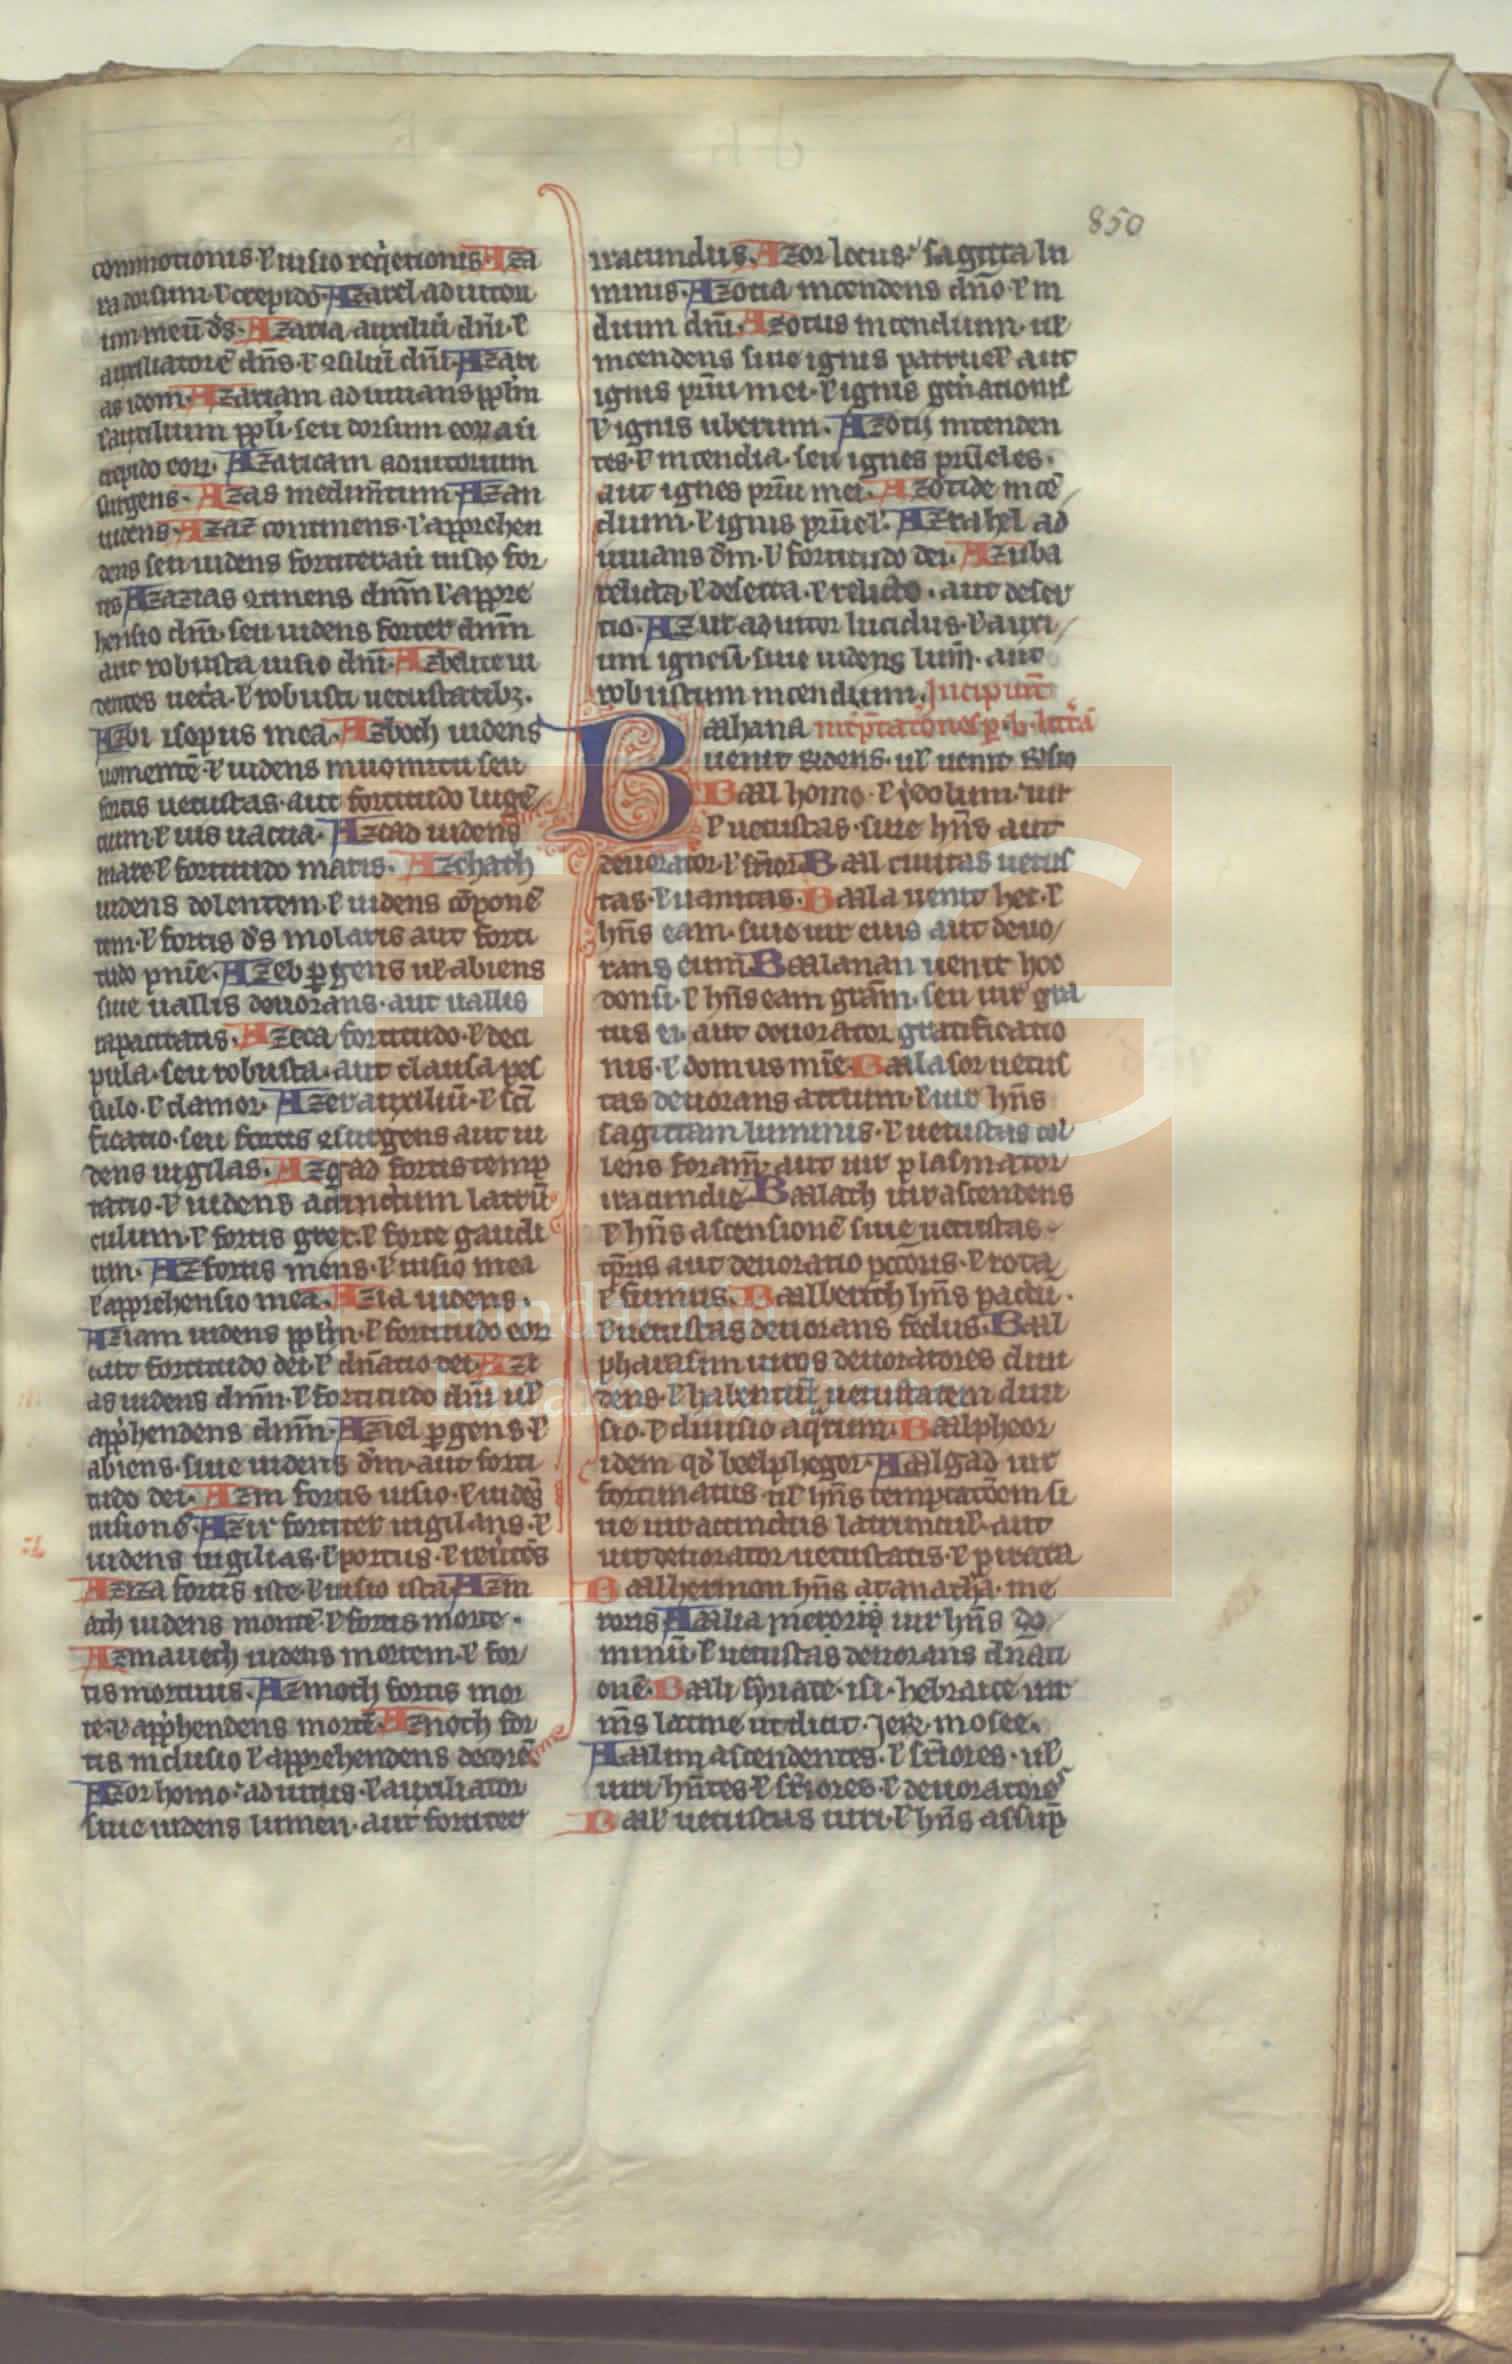 850
commotionis. ł uisio reqietionis. Aza
ra dorsum. ł crepido. Azarel adiutori
um meū ds̄. Azaria auxiliū dn̄i. ł
auxiliatorē dn̄s. ł ꝯsiliū dn̄i. Azari
as idem. Azariam adiuuans pplm̄
ł auxilium ppli. seu dorsum eoꝝ aū
crepido eoꝝ. Azaricam adiutorium
surgens. Azas Azau
uidens. Azaz continens. ł apprehen
dens seu uidens fortiter aū uisio for
tis Azazias ꝯtinens dnm̄ ł appre
hensio dn̄i. seu uidens fortiter dnm̄
aut robusta uisio dn̄i. ui
dentes ł robusti uetustatibꝫ.
Azbi isopus mea. Azboch uidens
uomentē. ł uidens in uomitu seu
fortis uetustas. aut fortitudo lugē
cium. ł uis uacua. Azcad uidens
mare. ł fortitudo maris. Azchach
uidens dolentem. ł uidens cōponē
tem. ł fortis ds̄ molaris aut forti
tudo Azeb ꝑgens ul̄ abiens
siue uallis deuorans. aut uallis
rapacitatis. Azeca fortitudo. ł deci
pula. seu robusta. aut clausa pes
sulo. ł clamor. Azer auxiliū. ł sc̄i
ficatio. seu fortis ꝯsurgens aut ui
dens uigilas. Azgad fortis temp
tatio. ł uidens accinctum latrū
culum. ł fortis grex. ł forte gaudi
um. Azi fortis mens. ł uisio mea
ł apprehensio mea. Azia uidens.
Aziam uidens pplm̄. ł fortitudo eoꝝ
aut fortitudo dei. ł dn̄atio dei. Azi
as uidens dnm̄. ł fortitudo dn̄i ul̄
apphendens dnm̄. Aziel ꝑgens. ł
abiens. siue uidens dm̄. aut forti
tudo dei. Azin fortis uisio. ł uidēs
uisionē. Azir fortiter uigilans. ł
uidens uigilias. ł portus. ł
Aziza fortis iste. ł uisio ista. Azm
ach uidens montē. ł fortis monte.
Azmauech uidens mortem. ł for
tis mortuus. Azmoth fortis mor
te. ł apphendens mortē. Aznoch for
tis inclusio ł apprehendens decorē
Azor homo. adiutus. ł auxiliator
siue uidens lumen. aut fortiter
iracundus. Azor locus. sagitta lu
minis. Azoria incendens dn̄o. ł in
dium dn̄i. Azotus incendium. ul̄
incendens siue ignis patruel̄ aut
ignis mei. ł ignis gen̄ationis
ł ignis uberum. Azotij incenden
tes. ł incendia. seu ignes
aut ignes mei. Azotide incē
dium. ł ignis Azrahel ad
iuuans dm̄. ł fortitudo dei. Azuba
relicta. ł deserta. ł relictio. aut deser
tio. Azur adiutor lucidus. ł auxi
um ignesū. siue uidens lum̄. aut
robustum incendium. Incipiunt
Baahana int̄pretationes ꝑ. b. litterā
uenit ꝶdens. ul̄ uenit ꝶsio
Baal homo. ł ydolum. uir
ł uetustas. siue hn̄s aut
deuorator. ł Baal ciuitas uetus
tas. ł uanitas. Baala uenit hec. ł
hn̄s eam. siue uir eius aut deuo
rans eum. Baalanan uenit hoc
donū. ł hn̄s eam gram̄. seu uir gra
tus ei. aut deuorator gratificatio
nis. ł domus mīe. Baalasor uetus
tas deuorans atrium. ł uir hn̄s
sagittam luminis. ł uetustas tol
lens foram̄. aut uir plasmator
iracundie. Baalach uir ascendens
ł hn̄s ascensionē siue uetustas
aut deuoratio pectoris. ł rota
ł fumus. Baalberich hn̄s pactū.
ł uetustas deuorans fedus. Baal
pharasim uiros deuoratores diui
dens. ł habentes uetustatem diui
sio. ł diuisio aqrum. Baalpheor
idem qd̄ beelphegor. Aalgad uir
fortunatus ul̄ hn̄s temptatōem si
ue uir accinctus latruncul̄. aut
uir deuorator uetustatis. ł pirata
Baalhermon hn̄s anathā. me
roris. Aalia meroris uir hn̄s do
minū. ł uetustas deuorans dn̄ati
onē. Baali syriace. isi. hebraice uir
m̄s latine ut dicit. Jere. in osee.
Aalim ascendentes. ł ul̄
uiri hn̄tes. ł ł deuoratores
Baal̄ uetustas uiri. ł hn̄s assup̄